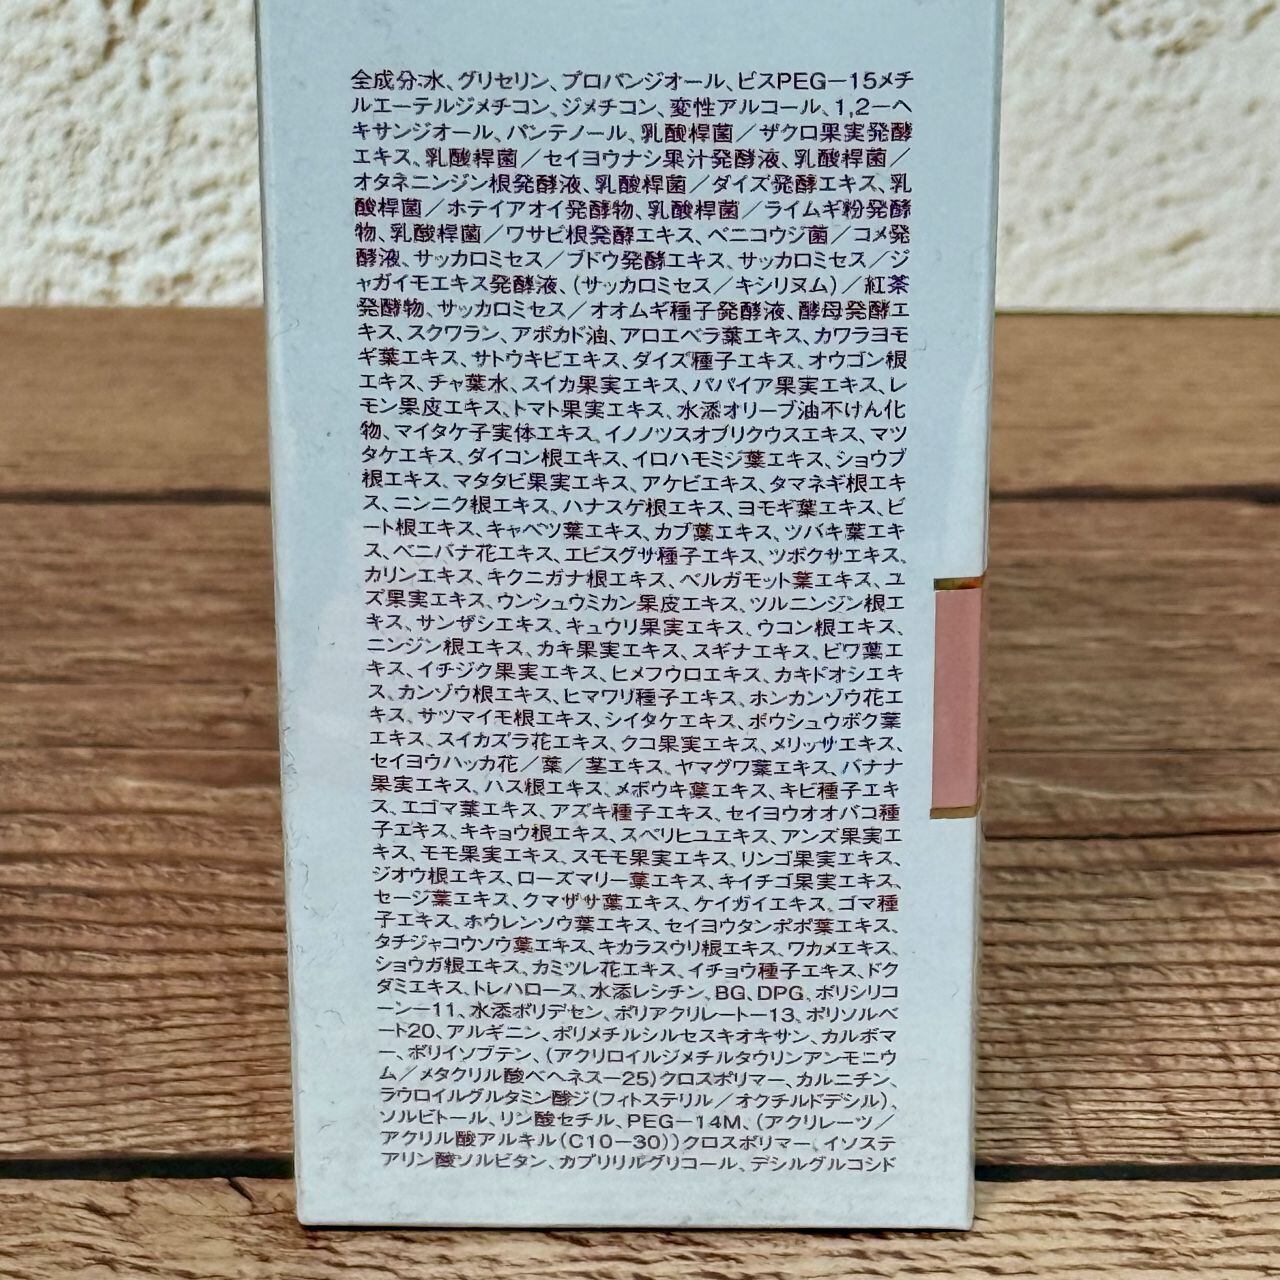 全成分:水、グリセリン、プロパンジオール、ビスPEG－15メチ
ルエーテルジメチコン、ジメチコン、変性アルコール、1,2－ヘ
キサンジオール、パンテノール、乳酸桿菌／ザクロ果実発酵
エキス、乳酸桿菌／セイヨウナシ果汁発酵液、乳酸桿菌／
オタネニンジン根発酵液、乳酸桿菌／ダイズ発酵エキス、乳
酸桿菌／ホテイアオイ発酵物、乳酸桿菌／ライムギ粉発酵
物、乳酸桿菌／ワサビ根発酵エキス、ベニコウジ菌／コメ発
酵液、サッカロミセス／ブドウ発酵エキス、サッカロミセス／ジ
ャガイモエキス発酵液、(サッカロミセス／キシリヌム)／紅茶
発酵物、サッカロミセス／オオムギ種子発酵液、酵母発酵エ
キス、スクワラン、アボカド油、アロエベラ葉エキス、カワラヨモ
ギ葉エキス、サトウキビエキス、ダイズ種子エキス、オウゴン根
エキス、チャ葉水、スイカ果実エキス、パパイア果実エキス、レ
モン果皮エキス、トマト果実エキス、水添オリーブ油不けん化
物、マイタケ子実体エキス、イノノツスオブリクウスエキス、マツ
タケエキス、ダイコン根エキス、イロハモミジ葉エキス、ショウブ
根エキス、マタタビ果実エキス、アケビエキス、タマネギ根エキ
ス、ニンニク根エキス、ハナスゲ根エキス、ヨモギ葉エキス、ビ
ート根エキス、キャベツ葉エキス、カブ葉エキス、ツバキ葉エキ
ス、ベニバナ花エキス、エビスグサ種子エキス、ツボクサエキス、
カリンエキス、キクニガナ根エキス、ベルガモット葉エキス、ユ
ズ果実エキス、ウンシュウミカン果皮エキス、ツルニンジン根エ
キス、サンザシエキス、キュウリ果実エキス、ウコン根エキス、
ニンジン根エキス、カキ果実エキス、スギナエキス、ビワ葉エ
キス、イチジク果実エキス、ヒメフウロエキス、カキドオシエキ
ス、カンゾウ根エキス、ヒマワリ種子エキス、ホンカンゾウ花エ
キス、サツマイモ根エキス、シイタケエキス、ボウシュウボク葉
エキス、スイカズラ花エキス、クコ果実エキス、メリッサエキス、
セイヨウハッカ花／葉／茎エキス、ヤマグワ葉エキス、バナナ
果実エキス、ハス根エキス、メボウキ葉エキス、キビ種子エキ
ス、エゴマ葉エキス、アズキ種子エキス、セイヨウオオバコ種
子エキス、キキョウ根エキス、スベリヒユエキス、アンズ果実エ
キス、モモ果実エキス、スモモ果実エキス、リンゴ果実エキス、
ジオウ根エキス、ローズマリー葉エキス、キイチゴ果実エキス、
セージ葉エキス、クマザサ葉エキス、ケイガイエキス、ゴマ種
子エキス、ホウレンソウ葉エキス、セイヨウタンポポ葉エキス、
タチジャコウソウ葉エキス、キカラスウリ根エキス、ワカメエキス、
ショウガ根エキス、カミツレ花エキス、イチョウ種子エキス、ドク
ダミエキス、トレハロース、水添レシチン、BG、DPG、ポリシリコ
ーン－11、水添ポリデセン、ポリアクリレート－13、ポリソルベ
ート20、アルギニン、ポリメチルシルセスキオキサン、カルボマ
ー、ポリイソブテン、(アクリロイルジメチルタウリンアンモニウ
ム／メタクリル酸ベヘネス－25)クロスポリマー、カルニチン、
ラウロイルグルタミン酸ジ(フィトステリル／オクチルドデシル)、
ソルビトール、リン酸セチル、PEG－14M、(アクリレーツ／
アクリル酸アルキル(C10－30))クロスポリマー、イソステ
アリン酸ソルビタン、カプリリルグリコール、デシルグルコシド